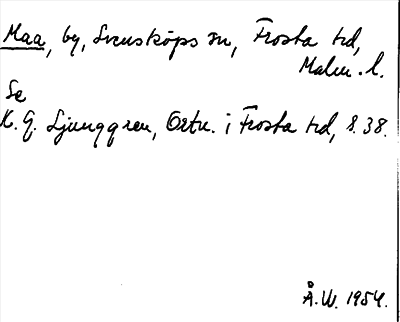 Maa, by, Svensköps sn, Frosta hd,
Malm. l.
Se
K. G. Ljunggren, Ortn. i Frosta hd, s. 38.
Å.W. 1954.